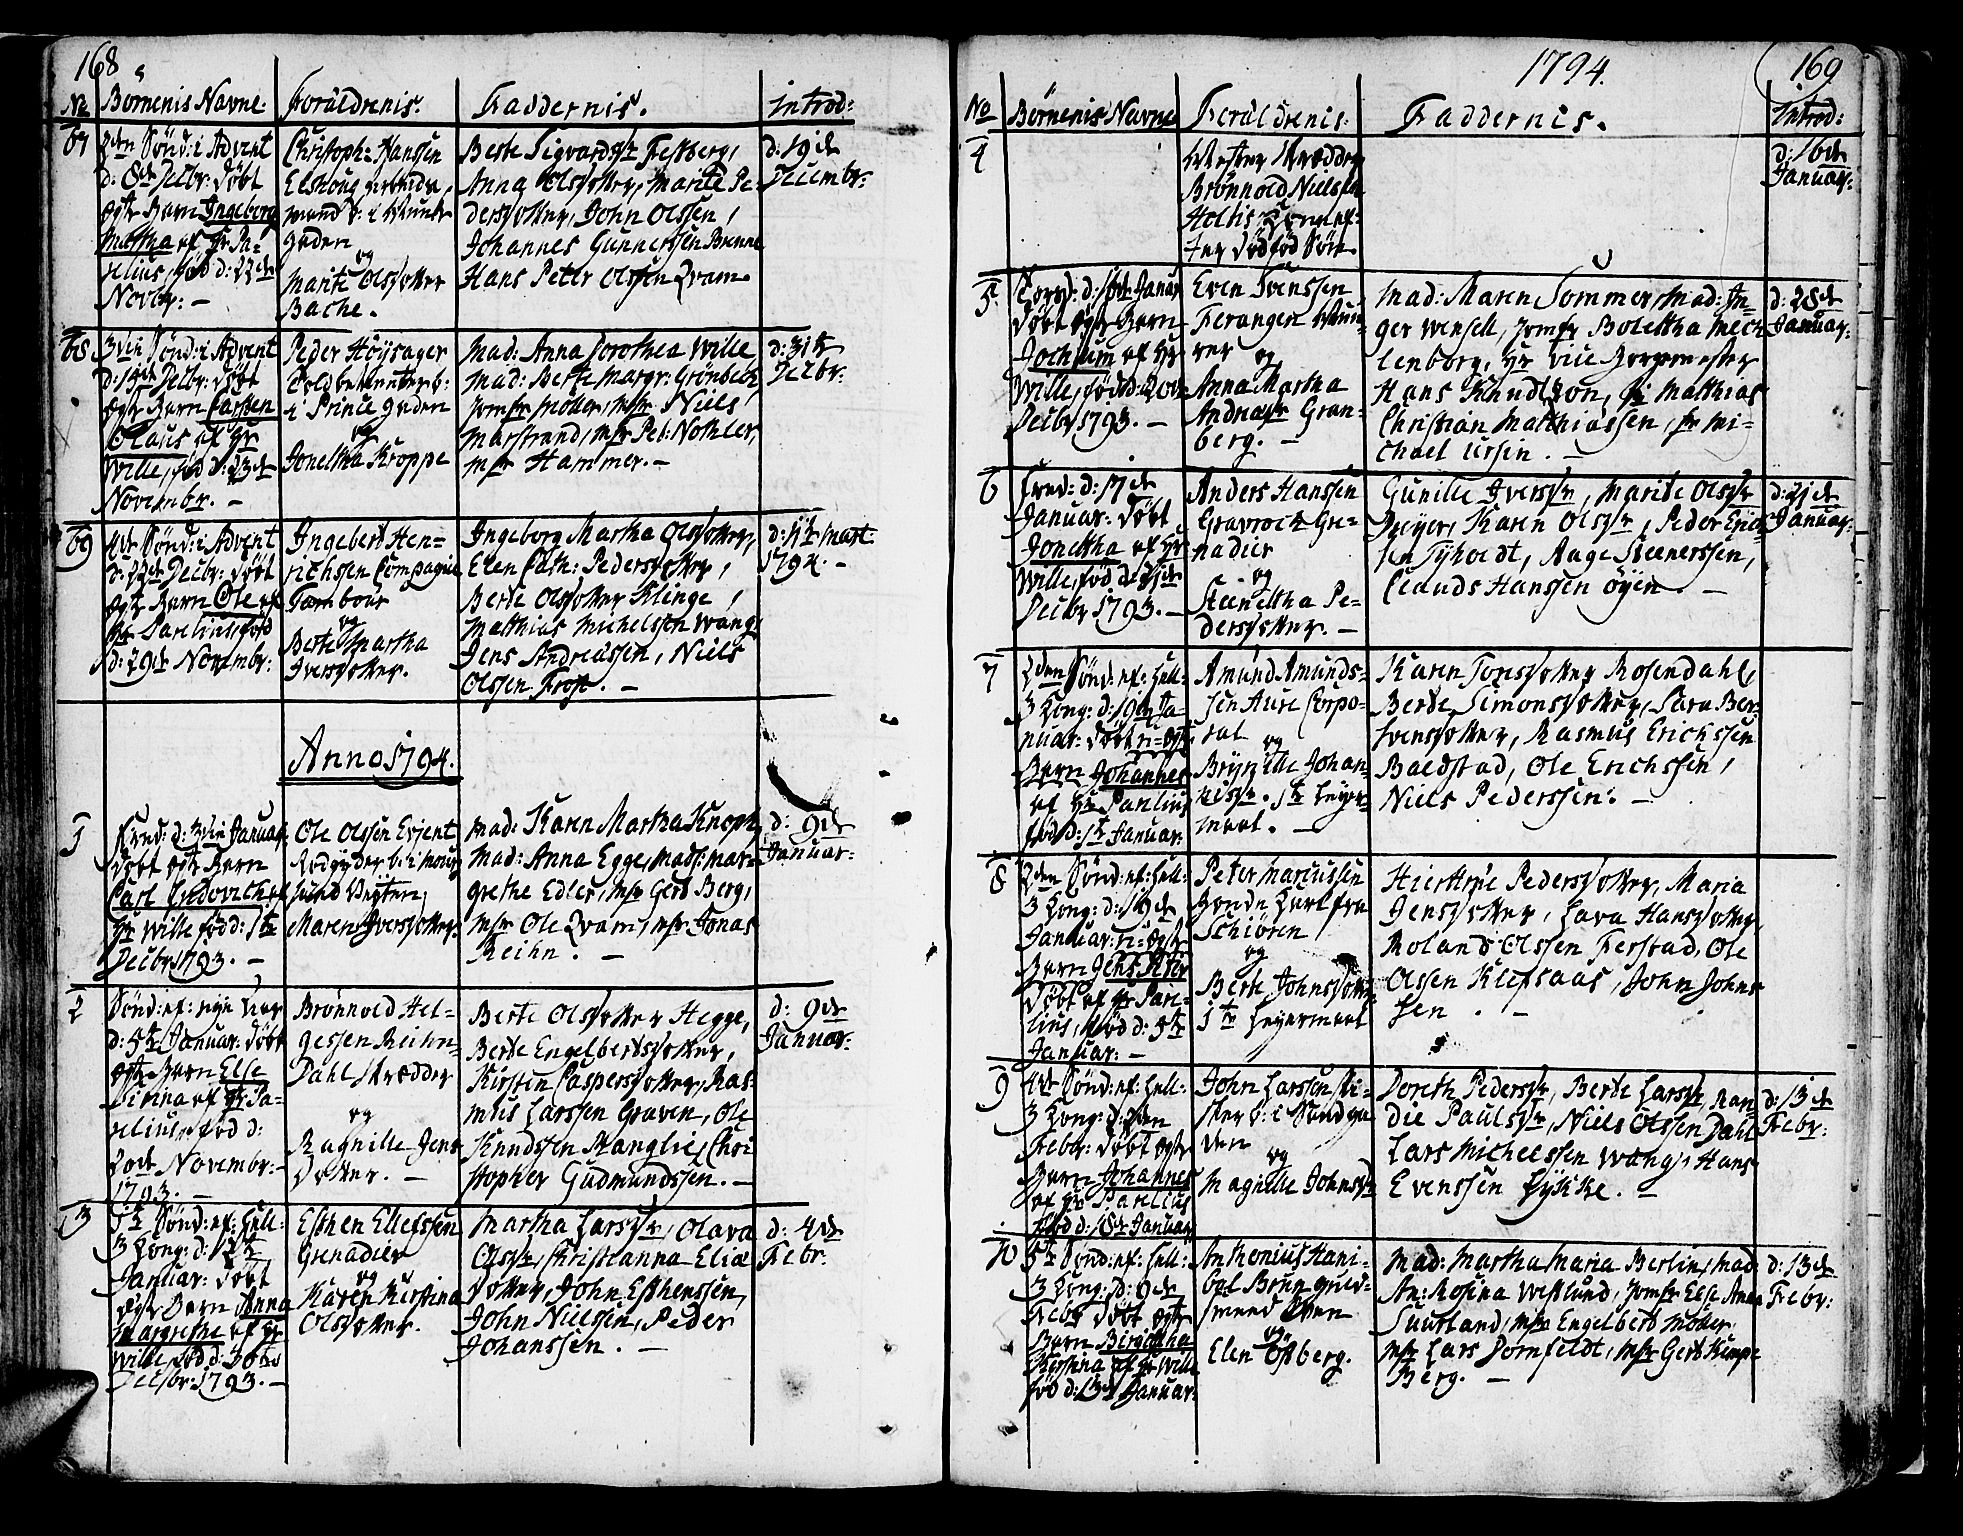 168
No
Børnenis Navne.
Forældrenis.
Faddernis.
introd:
67
2den Sønd: i Advent
d: 8de Decbr: døbt
ægte Barn Ingeborg
Martha af Hr Pa-
relius, fød d: 22de
Novbr: –
Christoph: Hanssen
Elshoug
mand b: i
gaden
og
Marite Olsdotter
Bache.
Berte Sigvardsdr Festberg,
Anna Olsdotter, Marite Pe-
dersdotter, John Olssen,
Johannes Gunnerssen Brenne
Hans Peter Olssen Qvam
d: 19de
Decembr:
68
3die Sønd: i Advent
d: 15de Decbr: døbt
ægte Barn Carsten
Olaus af Hr
Wille, fød d: 23de
Novembr. –
Peder Höysager
b:
i Prince gaden
og
Joneltha Kroppe
Mad: Anna Dorothea Wille
Mad: Berte Margr: Grønbech,
Jomfr Möller, Msr Niels
Marstrand, Msr Pet: Nothler,
Msr Hammer. –
d: 31te
Decbr:
69
4de Sønd: i Advent
d: 22de Decbr: døbt
ægte Barn Ole af
Hr Parelius, fød
d: 29de Novembr:
Ingebert Hen-
richssen Compagnie
Tambour
og
Berte Martha
Iversdotter.
Ingeborg Martha Olsdotter,
Elen Cath: Pedersdotter,
Berte Olsdotter Klinge,
Matthias Michelssen Wang,
Jens Andreassen, Niels
Olssen Frost. –
d: 11te Mart:
1794. –
Anno 1794.
1
Fred: d: 3die Januar:
døbt ægte Barn
Carl Ludovich af
Hr Wille fød d: 1te
Decbr 1793. –
Ole Olssen Erjent
Rodgyder b: i
Maren Iversdotter.
Mad: Karen Martha Knoph,
Mad: Anna Egge, Mads: Mar-
grethe Edler, Msr Gert Berg,
Msr Ole Qvam, Msr Jonas
Reihn. –
d: 9de
Januar:
2
Sønd: ef: nye Aar
d: 5te Januar: døbt
ægte Barn Else
Sirina af Hr Pa-
relius, fød d:
Novembr:
1793. –
Brønnold Hel-
gessen Reihn-
Dahl Skrædder
og
Ragnille Jens
dotter. –
Berte Olsdotter Hegge,
Berte Engelbertsdotter,
Kirsten Caspersdotter, Ras-
mus Larssen Graven, Ole
Knudssen Stanglie, Chri
stopher Gudmundssen. –
d: 9de
Januar:
3
1te Sønd: ef: Hell:
3 Kong: d: 12te
Januar: døbt
ægte Barn Anna
Margrethe af Hr
Wille, fød d: 30te
Decbr: 1793. –
Esthen Ellefssen
Grenadier
og
Karen Kirstina
Olsdotter.
Martha Larsdr, Olava
Olsdr, Christianna Eliæ
dotter, John Esthenssen,
John Nielssen, Peder
Johanssen. –
d: 4de
Febr:
1794.
169
No
Børnenis Navne
Forældrenis.
Faddernis.
introd:
4
Mester Skrædder
Brønnold Nielssen
Holtis Kone ef-
ter dødfød Børn
d: 16de
Januar:
5
Torsd: d: 16de Januar
døbt ægte Barn
Jochum af Hr
Wille, fød d: 20de
Decbr 1793. –
Even Svenssen
Ferangen
og
Anna Martha
Andreasdr Gran-
berg. –
Mad: Maren Sommer, Mad: In-
ger Wensell, Jomfr Boletha Mech
lenborg, Hr Vice Borgemester
Hans Knudtzon, Hr Matthias
Christian Matthiassen, Hr Mi-
chael Ursin. –
d: 28de
Januar:
6
Fred: d: 17de
Januar: døbt
Jonetta af Hr
Wille, fød d: 21de
Decbr 1793. –
Anders Hanssen
Gravrock Gre-
nadier
og
Steneltha Pe-
dersdotter. –
Gunille Iversdr, Marite Olsdr
Dreyer, Karen Olsdr, Peder Erics
sen Tyholdt, Aage Steenerssen,
Clauds Hanssen Øyen. –
d: 21de
Januar:
7
2den Sønd: ef: Hell:
3 Kong: d: 19de Ja-
nuar: døbt u-ægte
Barn Johannes
af Hr Parelius
fød d: 1te Januar:
Amund Amunds-
sen Aure Corpo-
ral
og
Brynille Johan-
nesdr. 1te Leyer-
maal. –
Karen Tonsdotter Rosendahl,
Berte Simonsdotter, Sara Ber-
tvensdotter, Rasmus Erichssen
Baldstad, Ole Erichssen,
Niels Pederssen. –
8
2den Sønd: ef: Hell:
3 Kong: d: 19de
Januar: u-ægte
Barn Jens
døbt af Hr Pare-
lius, fød d: 5te
Januar: –
Peter Mariussen
Bonde Karl fra
Schiören
og
Berte Johnsdotter
1te Leyermaal
Hiertrue Pedersdotter, Maria
Jensdotter, Lava Hansdotter,
Roland Olssen Ferstad, Ole
Olssen Klefsaas, John Johns
sen. –
9
4de Sønd: ef: Hell:
3 Kong: d: 2den
Febr: døbt ægte
Barn Johannes
af Hr Parelius
fød d: 18de Januar
John Larssen Fi-
sker b: i Sandga
den
og
Magnille Johnsdr
Doreth Pedersdr, Berte Larsdr, Ran-
die Paulsdr, Niels Olssen Dahl
Lars Michelssen Wang, Hans
Evenssen Lykke. –
d: 13de
Febr:
10
5te Sønd: ef: Hell:
3 Kong: d: 9de
Febr døbt ægte
Barn Birgittha
af Hr Wille
fød d: 13de Januar:
Anthonius Hani-
bal Brun guld-
smed Sven
og
Elen Østberg.
Mad: Martha Maria Berlin, Mad:
An: Rosina Westlund, Jomfr Else Anna
Suurland, Msr Engelbert Möller,
Msr Lars Dornfeldt, Msr Gert Kimpe
Berg. –
d: 13de
Febr: